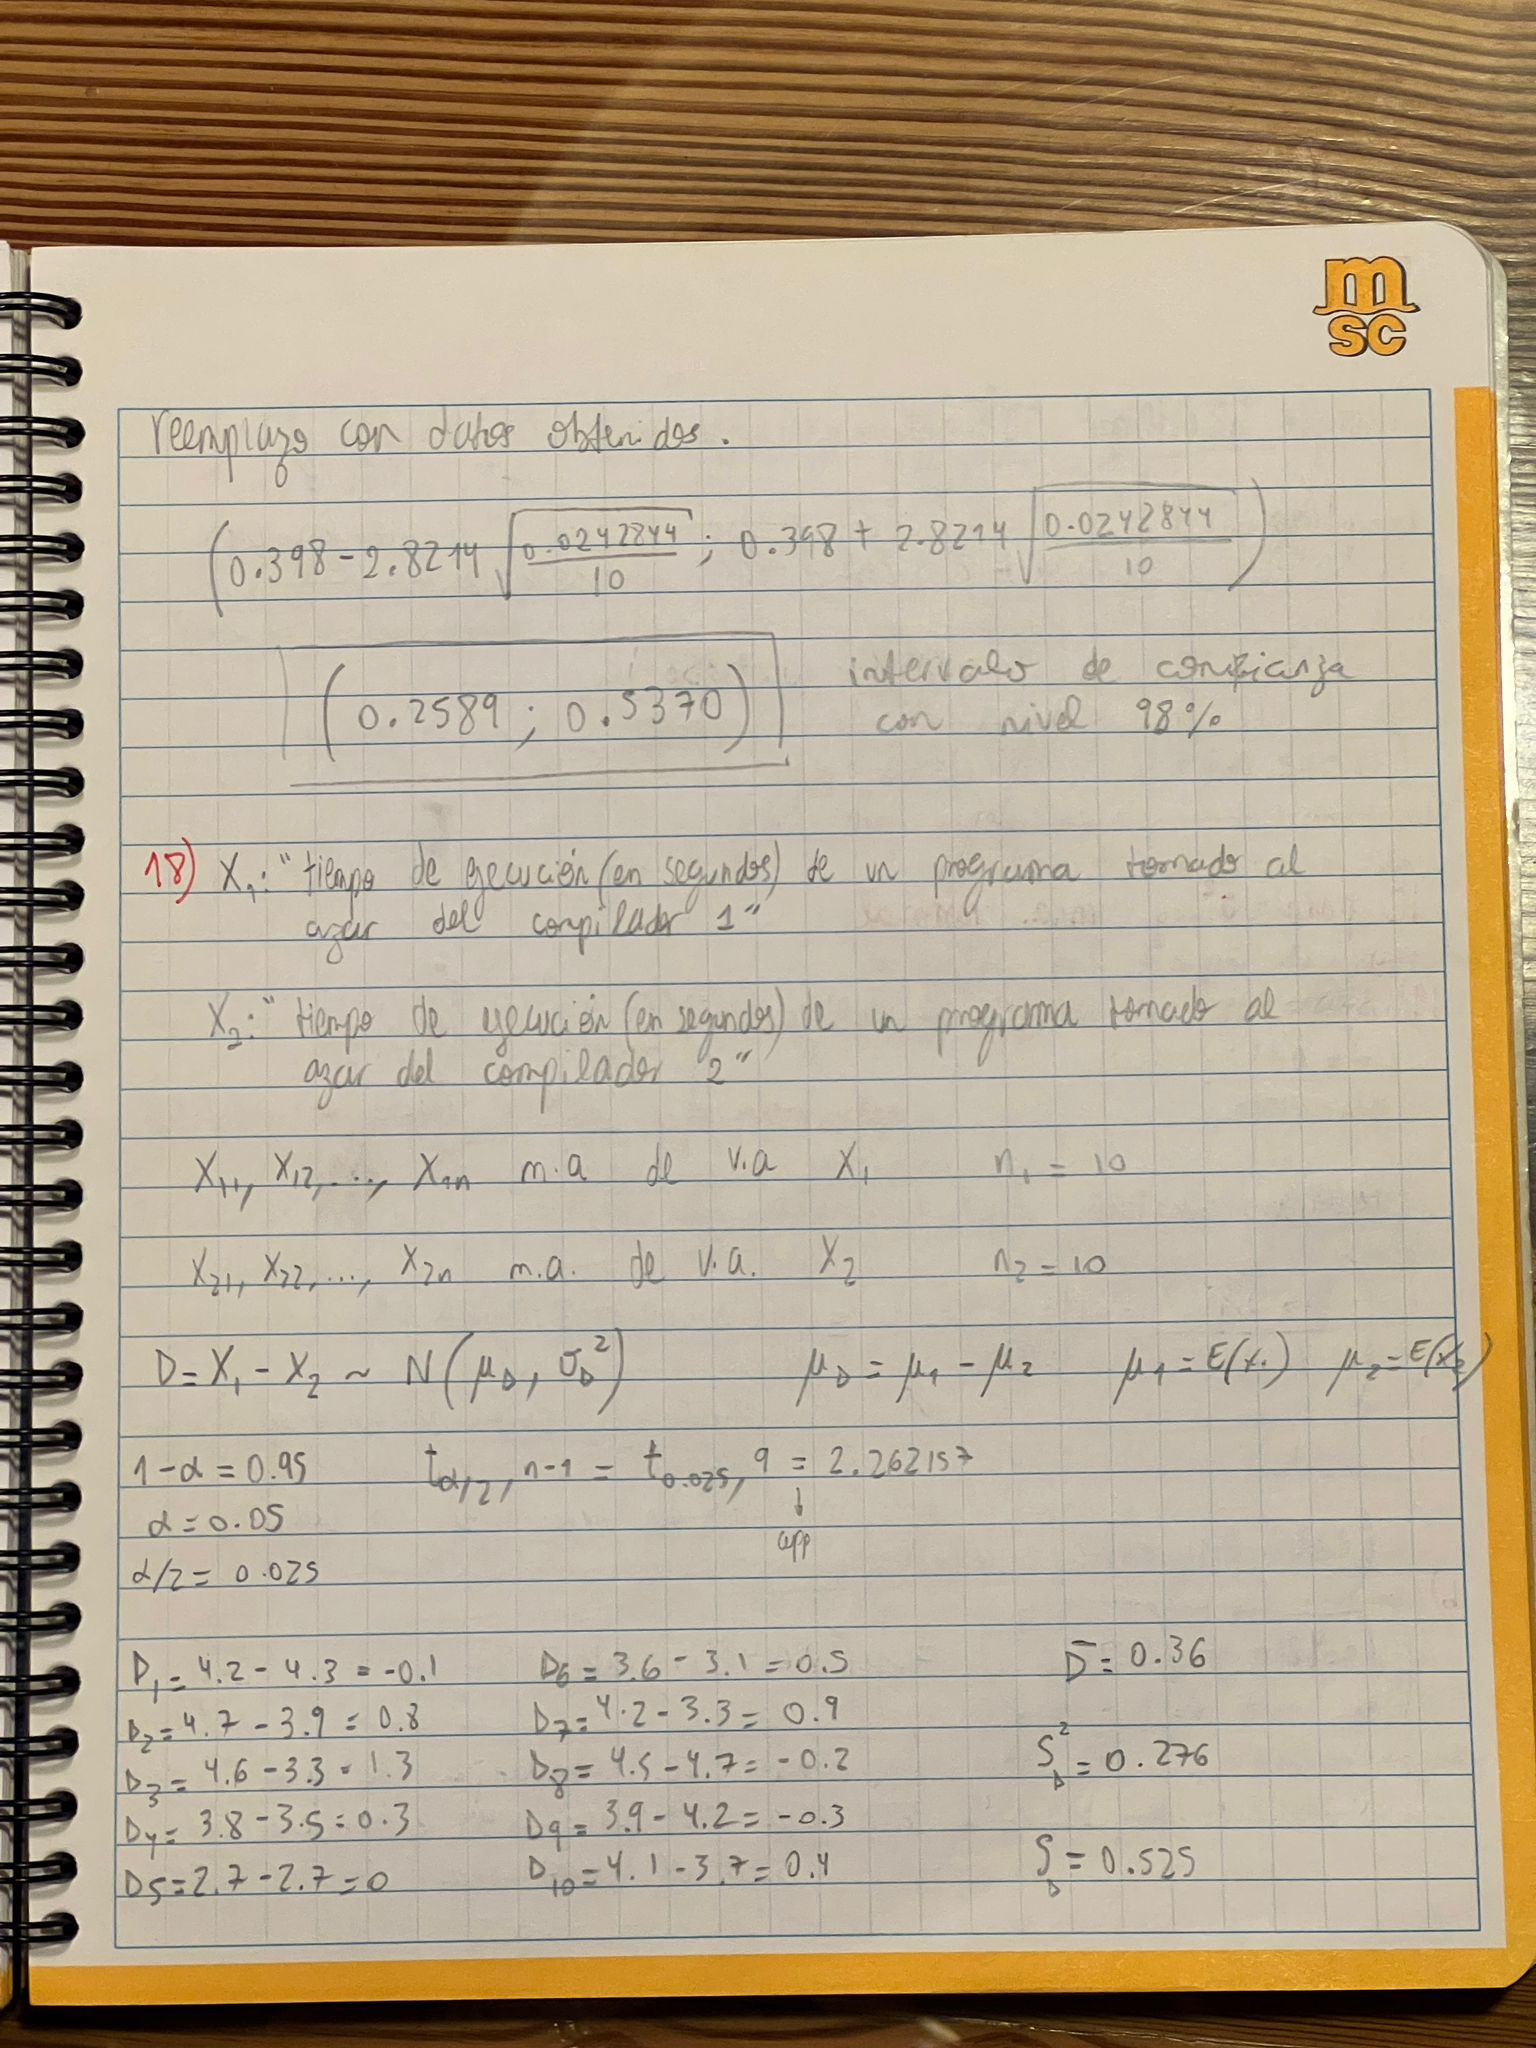 m
sc
reemplazo con datos obtenidos.
(0.398 - 2.8214 √(0.0242844/10) ; 0.398 + 2.8214 √(0.0242844/10))
(0.2589 ; 0.5370) intervalo de confianza
con nivel 98%
18) X₁: "tiempo de ejecución (en segundos) de un programa tomado al
azar del compilador 1"
X₂: "tiempo de ejecución (en segundos) de un programa tomado al
azar del compilador 2"
X₁₁, X₁₂, ..., X₁ₙ m.a de v.a X₁ n₁ = 10
X₂₁, X₂₂, ..., X₂ₙ m.a. de v.a. X₂ n₂ = 10
D = X₁ - X₂ ~ N(μ_D, σ_D²) μ_D = μ₁ - μ₂ μ₁ = E(X₁) μ₂ = E(X₂)
1-α = 0.95 t_α/2, n-1 = t_0.025, 9 = 2.262157
α = 0.05 ↓
app
α/2 = 0.025
D₁ = 4.2 - 4.3 = -0.1 D₆ = 3.6 - 3.1 = 0.5 D̅ = 0.36
D₂ = 4.7 - 3.9 = 0.8 D₇ = 4.2 - 3.3 = 0.9
D₃ = 4.6 - 3.3 = 1.3 D₈ = 4.5 - 4.7 = -0.2 S_D² = 0.276
D₄ = 3.8 - 3.5 = 0.3 D₉ = 3.9 - 4.2 = -0.3
D₅ = 2.7 - 2.7 = 0 D₁₀ = 4.1 - 3.7 = 0.4 S_D = 0.525